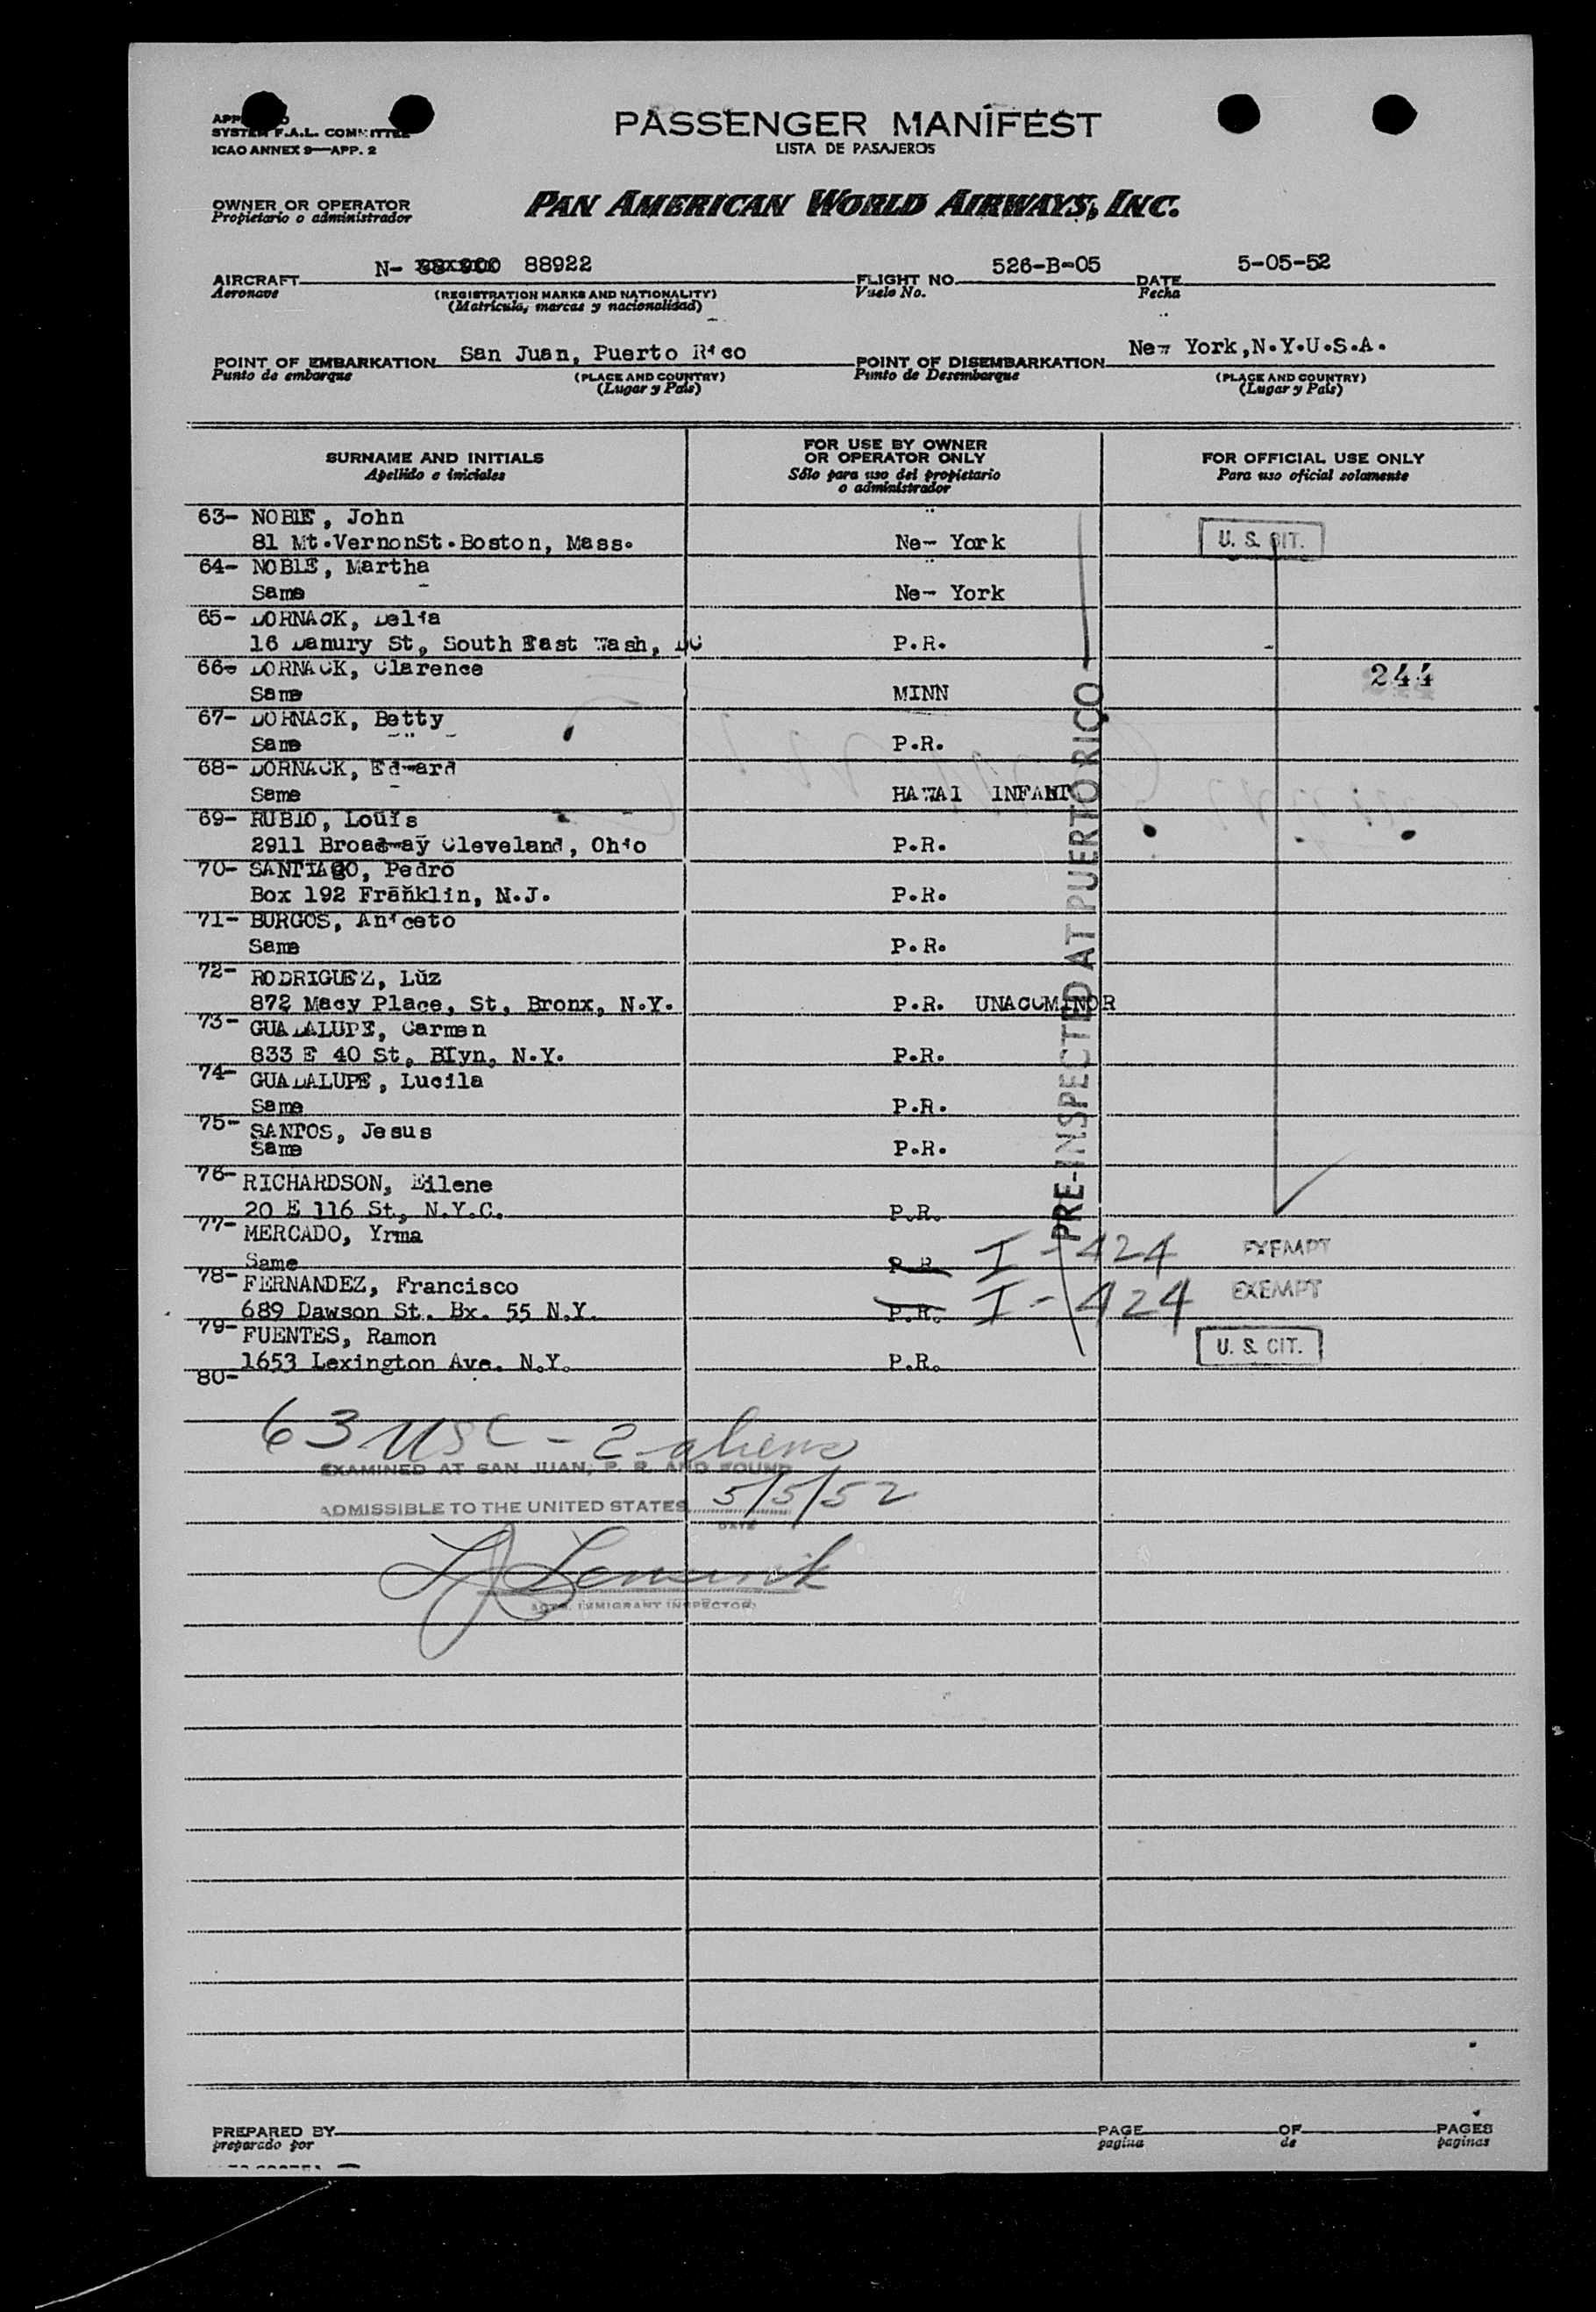 SYSTEM F.A.L. COMMITTEE
ICAO ANNEX 9—APP. 2
PASSENGER MANIFEST
LISTA DE PASAJEROS
OWNER OR OPERATOR
Propietario o administrador
PAN AMERICAN WORLD AIRWAYS, INC.
AIRCRAFT N- 88922 FLIGHT NO. 526-B-05 DATE 5-05-52
Aeronave (REGISTRATION MARKS AND NATIONALITY) Vuelo No. Fecha
(Matrícula, marcas y nacionalidad)
POINT OF EMBARKATION San Juan, Puerto Rico POINT OF DISEMBARKATION New York,N.Y.U.S.A.
Punto de embarque (PLACE AND COUNTRY) Punto de Desembarque (PLACE AND COUNTRY)
(Lugar y País) (Lugar y País)
SURNAME AND INITIALS FOR USE BY OWNER OR OPERATOR ONLY FOR OFFICIAL USE ONLY
Apellido e iniciales Sólo para uso del propietario o administrador Para uso oficial solamente
63- NOBLE, John
81 Mt.VernonSt.Boston, Mass. New York U. S. CIT.
64- NOBLE, Martha
Same New York
65- DORNACK, Delia
16 Danury St, South East Wash, DC P.R.
66- DORNACK, Clarence 244
Same MINN
67- DORNACK, Betty
Same P.R.
68- DORNACK, Edward
Same HAWAI INFANT
69- RUBIO, Louis
2911 Broadway Cleveland, Ohio P.R.
70- SANTIAGO, Pedro
Box 192 Franklin, N.J. P.R.
71- BURGOS, Aniceto
Same P.R.
72- RODRIGUEZ, Luz
872 Macy Place, St, Bronx, N.Y. P.R. UNACCMINOR
73- GUADALUPE, Carmen
833 E 40 St, Blyn, N.Y. P.R.
74- GUADALUPE, Lucila
Same P.R.
75- SANTOS, Jesus
Same P.R.
76- RICHARDSON, Eilene
20 E 116 St, N.Y.C. P.R.
PRE-INSPECTED AT PUERTO RICO
77- MERCADO, Yrma
Same P.R. I-424 EXEMPT
78- FERNANDEZ, Francisco
689 Dawson St. Bx. 55 N.Y. P.R. I-424 EXEMPT
79- FUENTES, Ramon
1653 Lexington Ave. N.Y. P.R. U. S. CIT.
80-
63 USC - 2 aliens
EXAMINED AT SAN JUAN, P. R. AND FOUND
ADMISSIBLE TO THE UNITED STATES 5/5/52
DATE
IMMIGRANT INSPECTOR
PREPARED BY PAGE OF PAGES
preparado por pagina de paginas